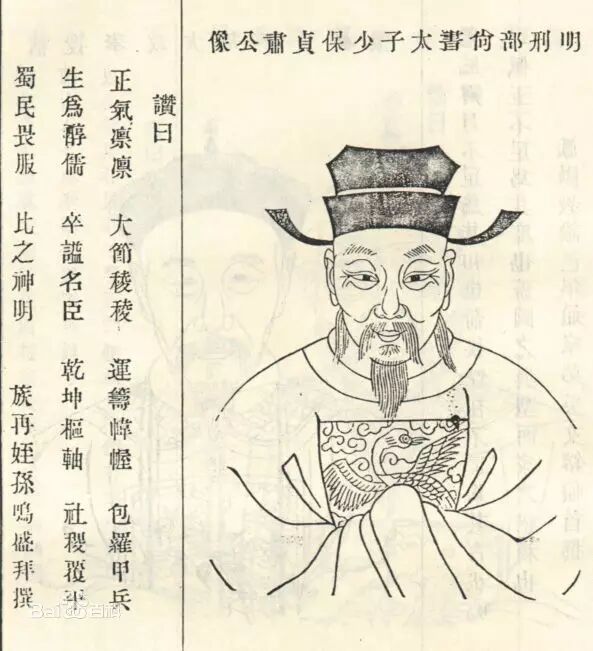 明刑部尙書太子少保貞肅公像
讚曰
正氣凛凛 大節稜稜 運籌幃幄 包羅甲兵
生爲醇儒 卒謚名臣 乾坤樞軸 社稷覆平
蜀民畏服 比之神明 族再姪孫鳴盛拜撰
Bai百科